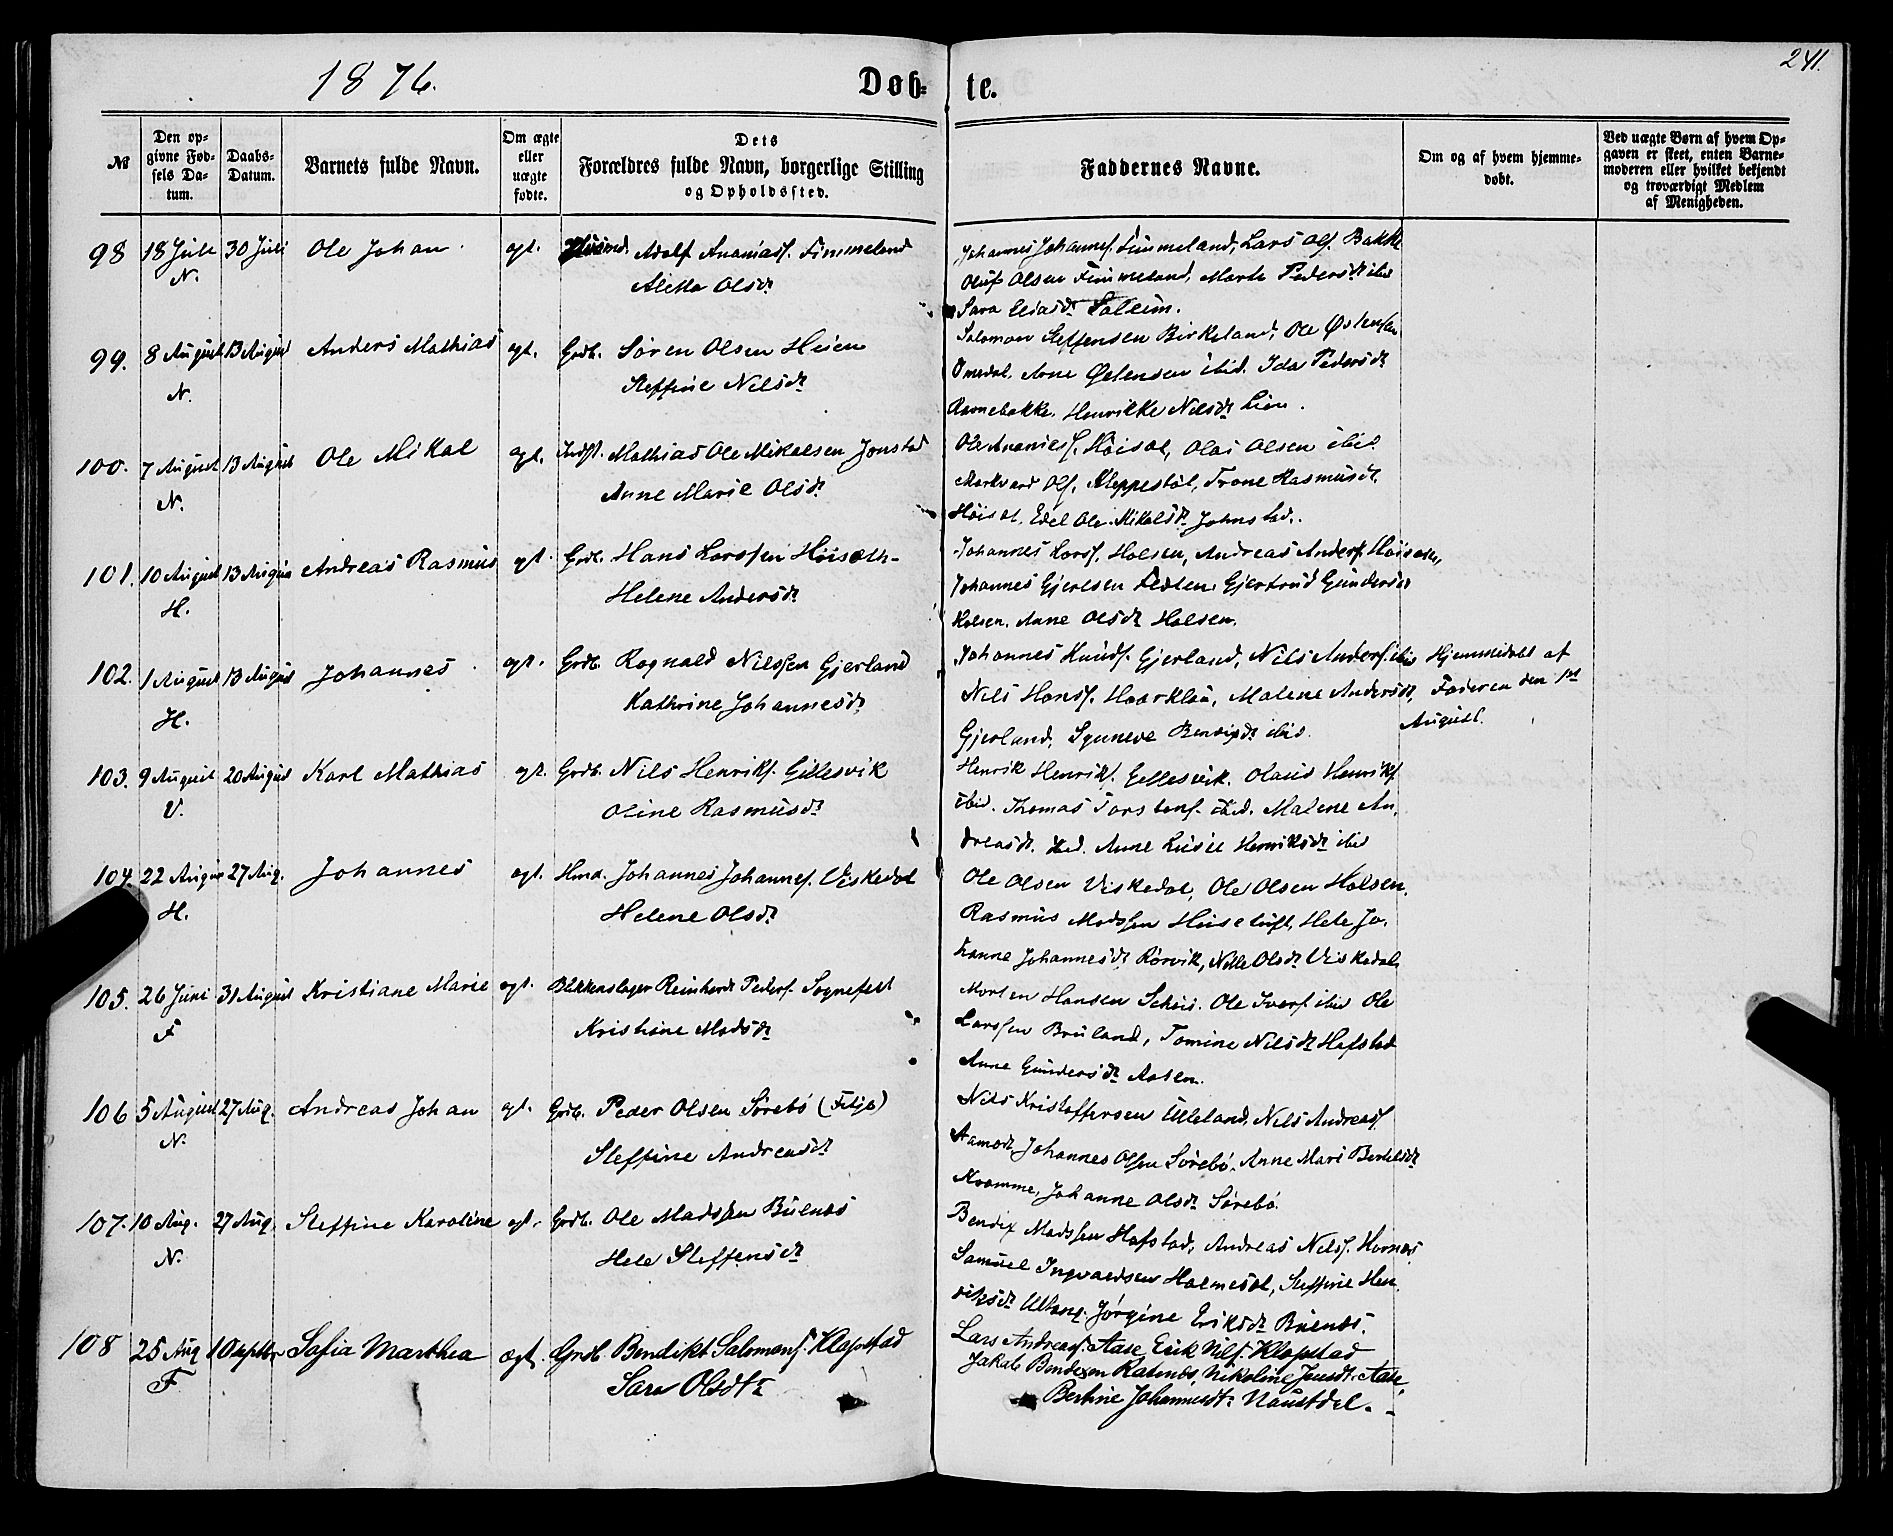 1876.
Døb-
te.
241.
№
Den opgivne Fødsels Datum.
Daabs-Datum.
Barnets fulde Navn.
Om ægte eller uægte fødte.
Dets Forældres fulde Navn, borgerlige Stilling og Opholdssted.
Faddernes Navne.
Om og af hvem hjemmedøbt.
Ved uægte Børn af hvem Opgaven er skeet, enten Barnemoderen eller hvilket bekjendt og troværdigt Medlem af Menigheden.
98 18 Juli 30 Juli Ole Johan. ægt. Adolf Ananiasf. Fimmeland
N. Aletta Olsdr
Johannes Johannesf. Fimmeland, Lars Olf. Bakke
Oluf Olsen Fimmeland, Marte Pedersdr ibid
Sara Eliasdr Soleim.
99. 8 August 13 August Anders Mathias ægt. Grdb. Søren Olsen Heien
N. Steffine Nilsdr
Salomon Steffensen Birkeland, Ole Østensen
Omedal, Arne Østensen ibid. Ida Pedersdr
Ravnebakke, Henrikke Nilsdr Lien.
100. 7 August 13 August Ole Mikal ægt. Indst. Mathias Ole Mikalsen Jonstad
N. Anne Marie Olsdr
Ole Ananiasf. Høisæt, Olai Olsen ibid
Markvard Olf. Kleppestøl, Trone Rasmusdr.
Høisæt, Edel Ole Mikalsdr Johnstad.
101. 10 August 13 August Andreas Rasmus ægt. Grdb. Hans Larssen Høisæth
H. Helene Andersdr
Johannes Larsf. Holsen, Andreas Andersf. Høisæth,
Johannes Gjertsen Tedten, Gjertrud Gundersdr
Holsen. Anne Olsdr Holsen.
102. 1 August 13 August Johannes ægt. Grdb. Rognald Nilssen Gjerland
H. Kathrine Johannesdr
Johannes Knudf. Gjerland, Nils Andersf. ibid
Nils Hansf. Haarklau, Malene Andersdr,
Gjerland, Synneve Bendixdr ibid.
Hjemmedøbt af
Faderen den 1ste
August.
103. 9 August 20 August Karl Mathias ægt. Grdb. Nils Henrikf. Gillesvik
V. Oline Rasmusdr
Henrik Henrikf. Gillesvik. Olaus Henrikf.
ibid. Thomas Torstenf. ibid. Malene An-
dreasdr. ibid. Anne Lusie Henriksdr ibid
104. 22 August 27 Aug. Johannes ægt. Hmd. Johannes Johannesf. Viskedal
H. Helene Olsdr
Ole Olsen Viskedal, Ole Olsen Holsen.
Rasmus Madssen Huse tuft, Hele Jo-
hanne Johannesdr Rørvik, Nille Olsdr Viskedal
105. 26 Juni 31 August Kristiane Marie ægt. Blikkenslager Reinhardt Pederf. Sognefest
F Kristine Madsdr
Morten Hansen Scheis. Ole Iversf. ibid Ole
Larssen Bruland, Tomine Nilsdr Hafstad
Anne Gundersdr Aasen.
106 5 August 27 Aug. Andreas Johan ægt. Grdb. Peder Olsen Sørebø (Fitje)
N. Steffine Andreasdr
Nils Kristoffersen Ulleland, Nils Andreasf.
Aamodt, Johannes Olsen Sørebø, Anne Mari Bertelsdr
Kvamme, Johanne Olsdr Sørebø.
107. 10 Aug. 27 Aug. Steffine Karoline ægt. Grdb. Ole Madssen Buenes
N. Hele Steffensdr
Bendix Madssen Hafstad, Andreas Nilsf. Hornes,
Samuel Ingvaldsen Holmesæt, Steffine Hen-
riksdr Ullang. Jørgine Eriksdr Buenes.
108 25 Aug 10 septbr Sofia Marthea ægt. Grdb. Bendikt Salomonsf. Klopstad
F Sara Olsdtr
Lars Andreasf. Aase, Erik Nilsf. Klopstad
Jakob Bendixen Ramnes, Nikoline Jensdt. Aase,
Bertine Johannesdtr Naustdal.